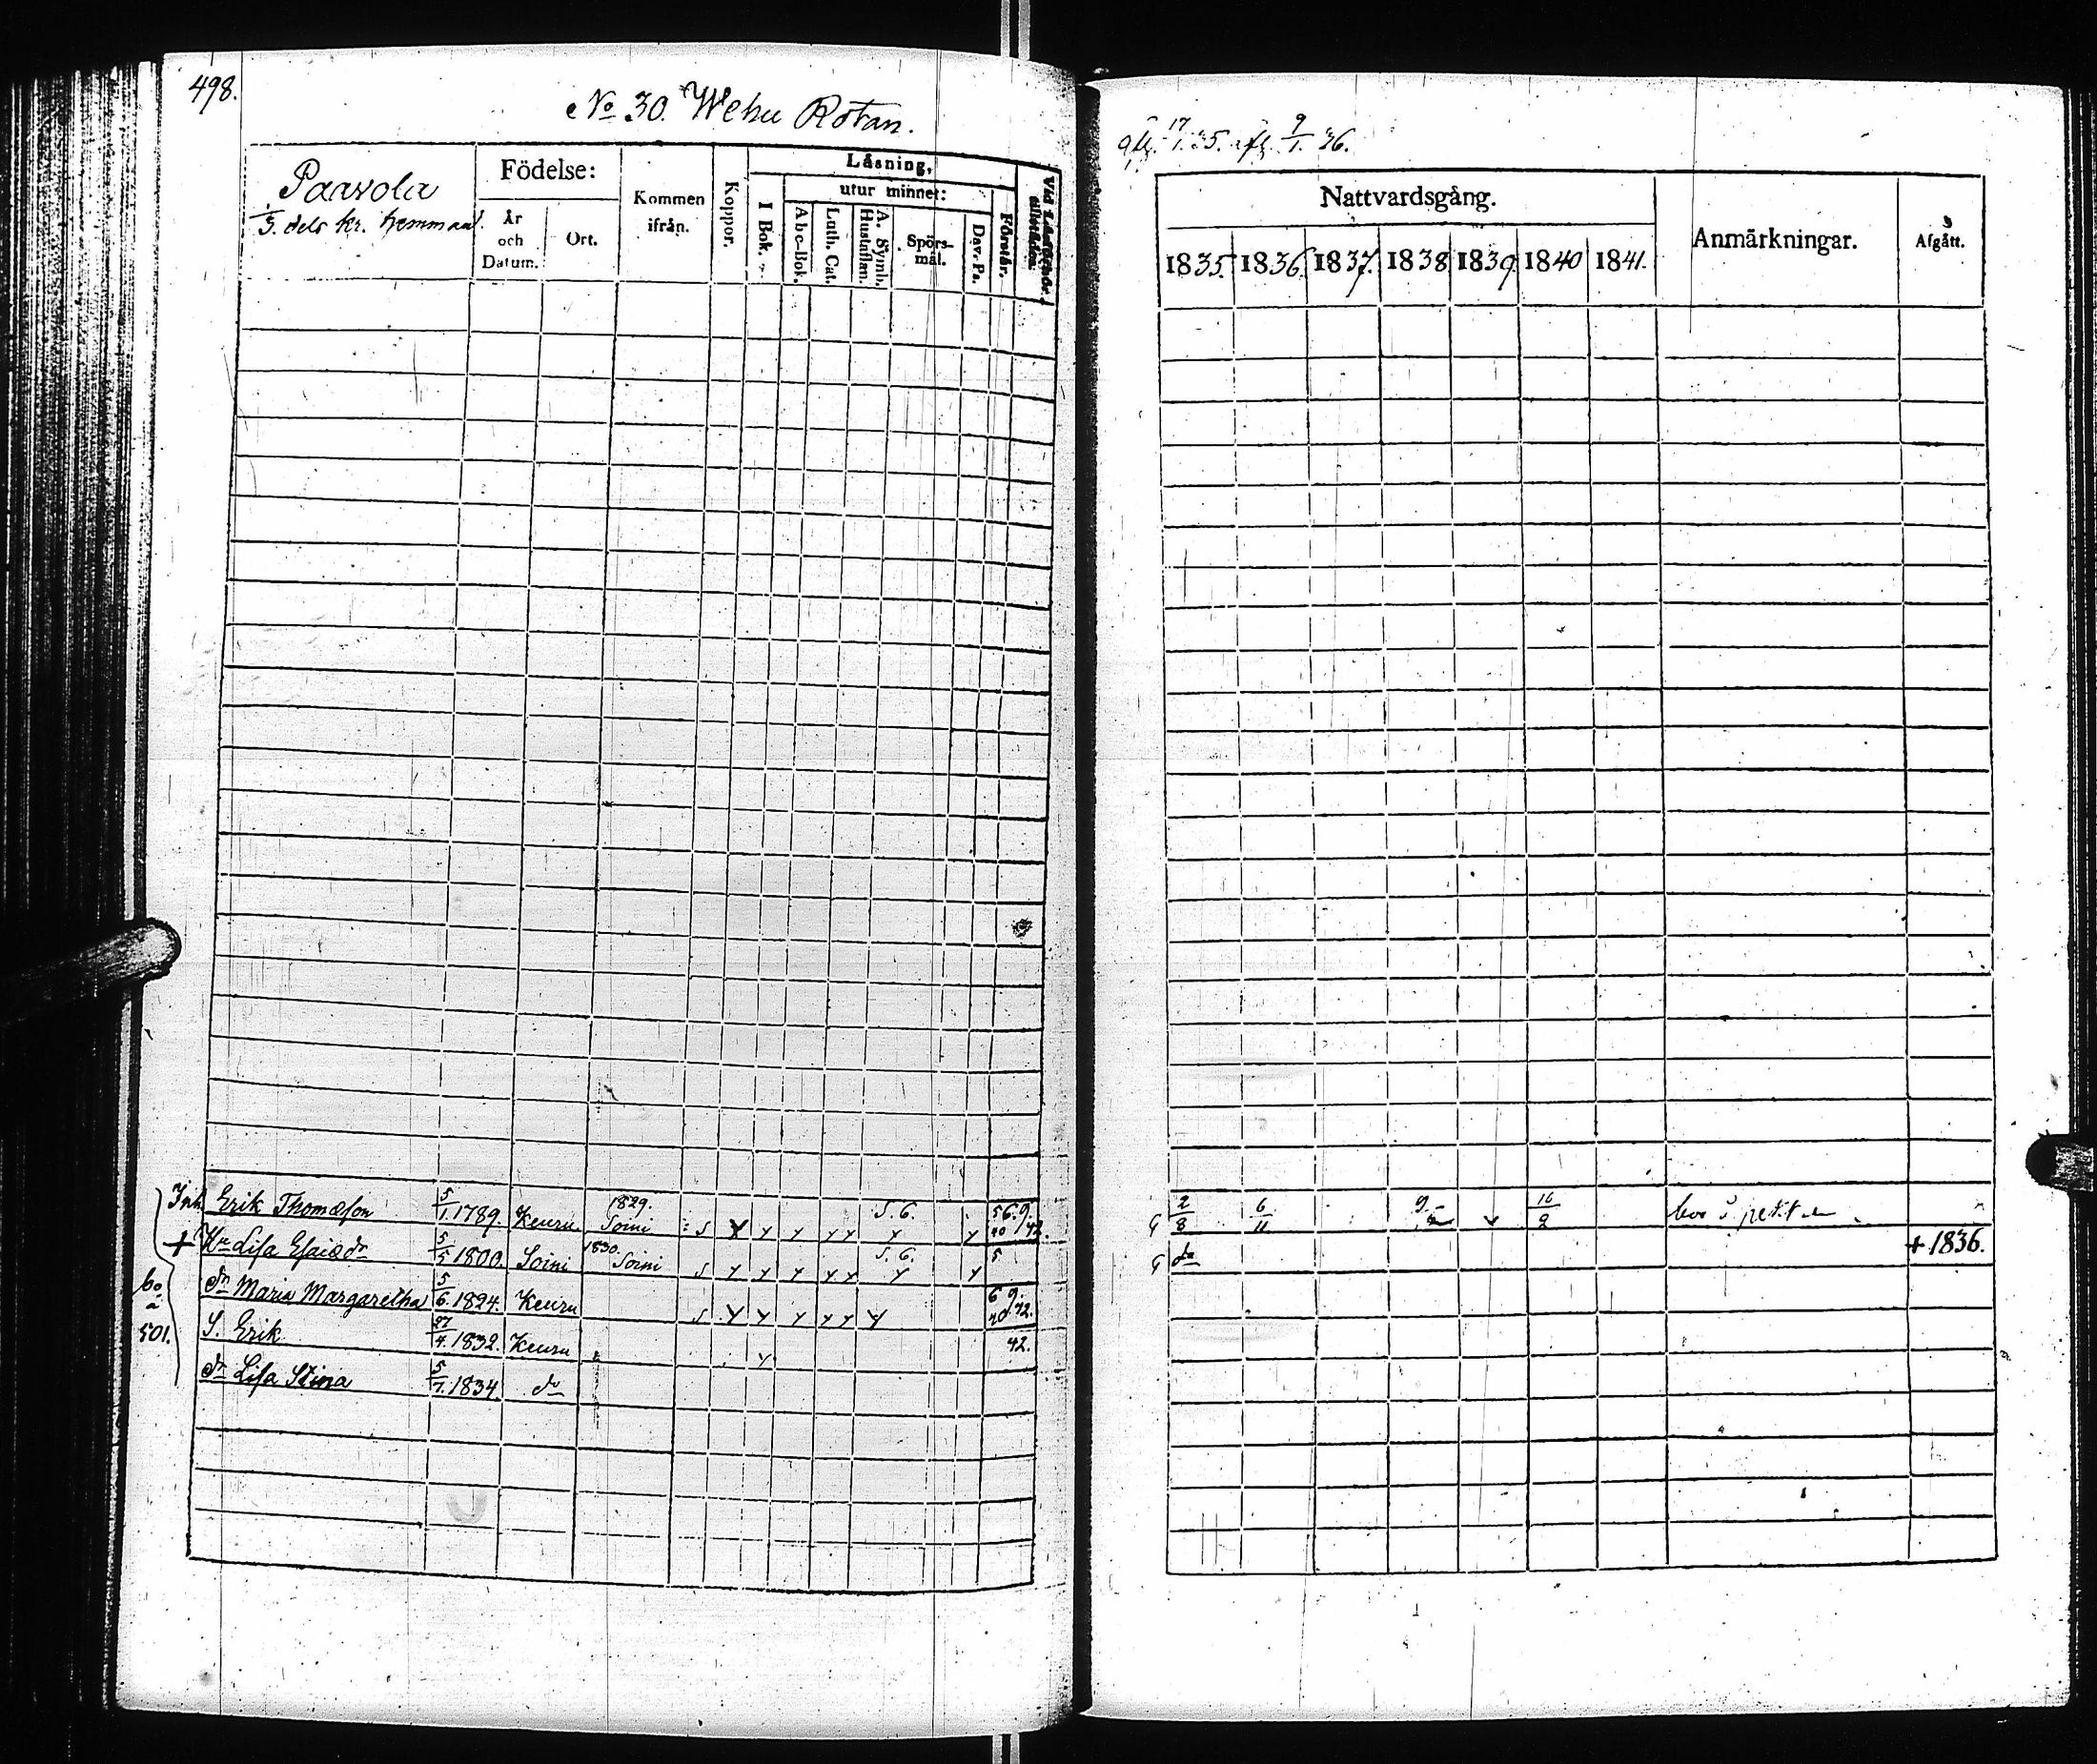 498.
No 30. Wehu Rotan.
Paavola
1/3. dels kr. hemman.
Födelse:
År och Datum.
Ort.
Kommen ifrån.
Koppor.
Läsning,
I Bok.
utur minnet:
Abc-Bok.
Luth. Cat.
A. Symb. Hustaflan.
Spörsmål.
Dav. Ps.
Förstår.
Vid Läseförhör
17/1. 35. 9/1. 36.
Nattvardsgång.
Anmärkningar.
Afgått.
1835. 1836. 1837. 1838 1839 1840 1841.
Inh. Erik Thomasson 5/1. 1789. Keuru 1829. Soini s y y y y y 5.6. y y 5 6. 9. 40 42. 2/8 6/11 9 16/2 bor i
+ Hu Lisa Esaiædr 5/5 1800. Soini 1830. Soini s y y y y y 5.6. y y 5 do + 1836.
dr Maria Margaretha 5/6. 1824. Keuru s y y y y y y 6 9. 40 42.
S. Erik 27/4. 1832. Keuru y 42.
dr Lisa Stina 5/7. 1834. do
bo
a
501.